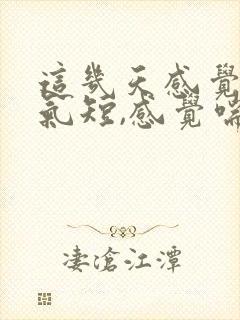 這幾天感覺
氣短,感覺喘
淒滄江潭